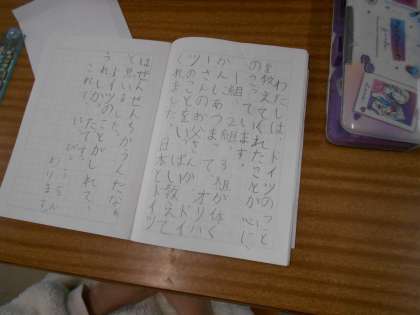 わたしは、ドイツのこと
を教えてくれたことが心に
のこっています。
1組、2組、3組が体く
かんにあつまって、オリバ
ーさんのお父さんが、ドイ
ツのことをいっぱい教えて
くれました。日本とドイツ
はぜんぜんちがうんだなぁ
と思いました。
ドイツのことがしれて、
うれしかったです。
これで、
おわります